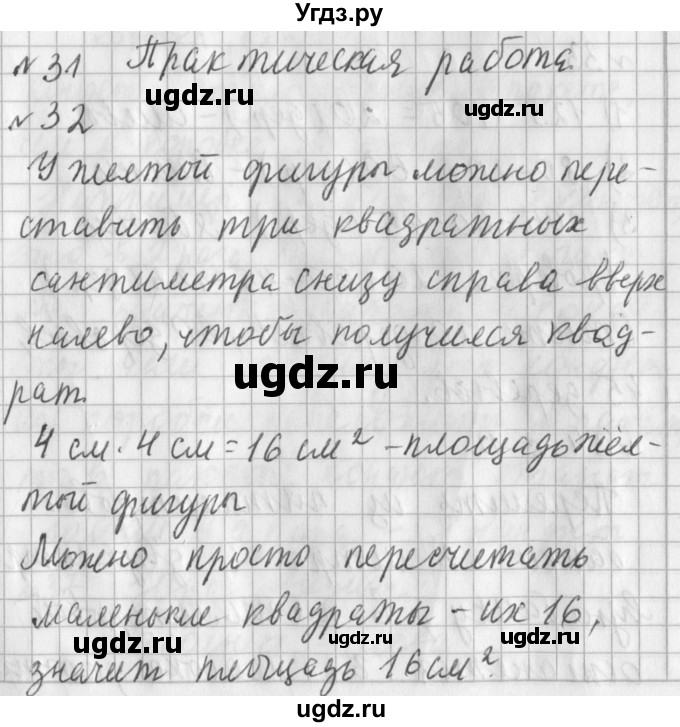 Угдз.ру
№31 Практическая работа.
ugdz.ru ugdz.ru
№32
У желтой фигуры можно пере-
ставить три квадратных
сантиметра снизу справа вверх
налево, чтобы получился квад-
ugdz.ru ugdz.ru
рат.
4 см · 4 см = 16 см² – площадь жёл-
той фигуры
Можно просто пересчитать
маленькие квадраты – их 16,
ugdz.ru ugdz.ru ugdz.ru
значит площадь 16 см².
ugdz.ru